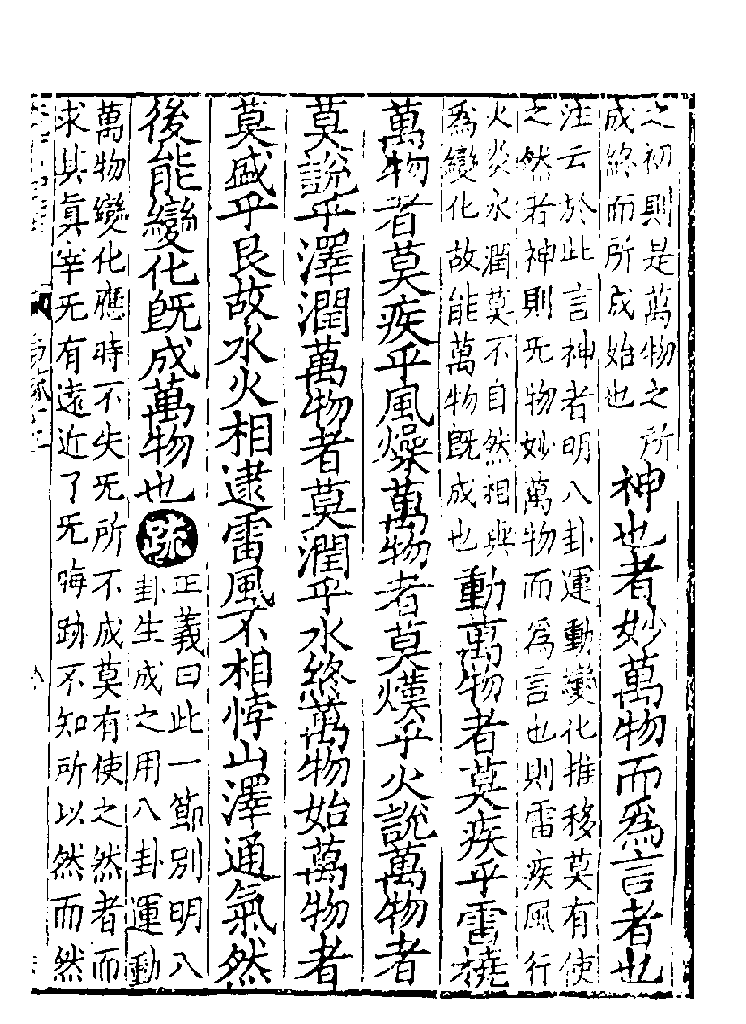 之初則是萬物之所
成終而所成始也
神也者妙萬物而為言者也
注云於此言神者明八卦運動變化推移莫有使
之然者神則旡物妙萬物而為言也則雷疾風行
火炎水潤莫不自然相與
為變化故能萬物旣成也
動萬物者莫疾乎雷橈
萬物者莫疾乎風燥萬物者莫熯乎火說萬物者
莫說乎澤潤萬物者莫潤乎水終萬物始萬物者
莫盛乎艮故水火相逮雷風不相悖山澤通氣然
後能變化旣成萬物也
疏
正義曰此一節別明八
卦生成之用八卦運動
萬物變化應時不失旡所不成莫有使之然者而
求其眞宰旡有遠近了旡晦跡不知所以然而然